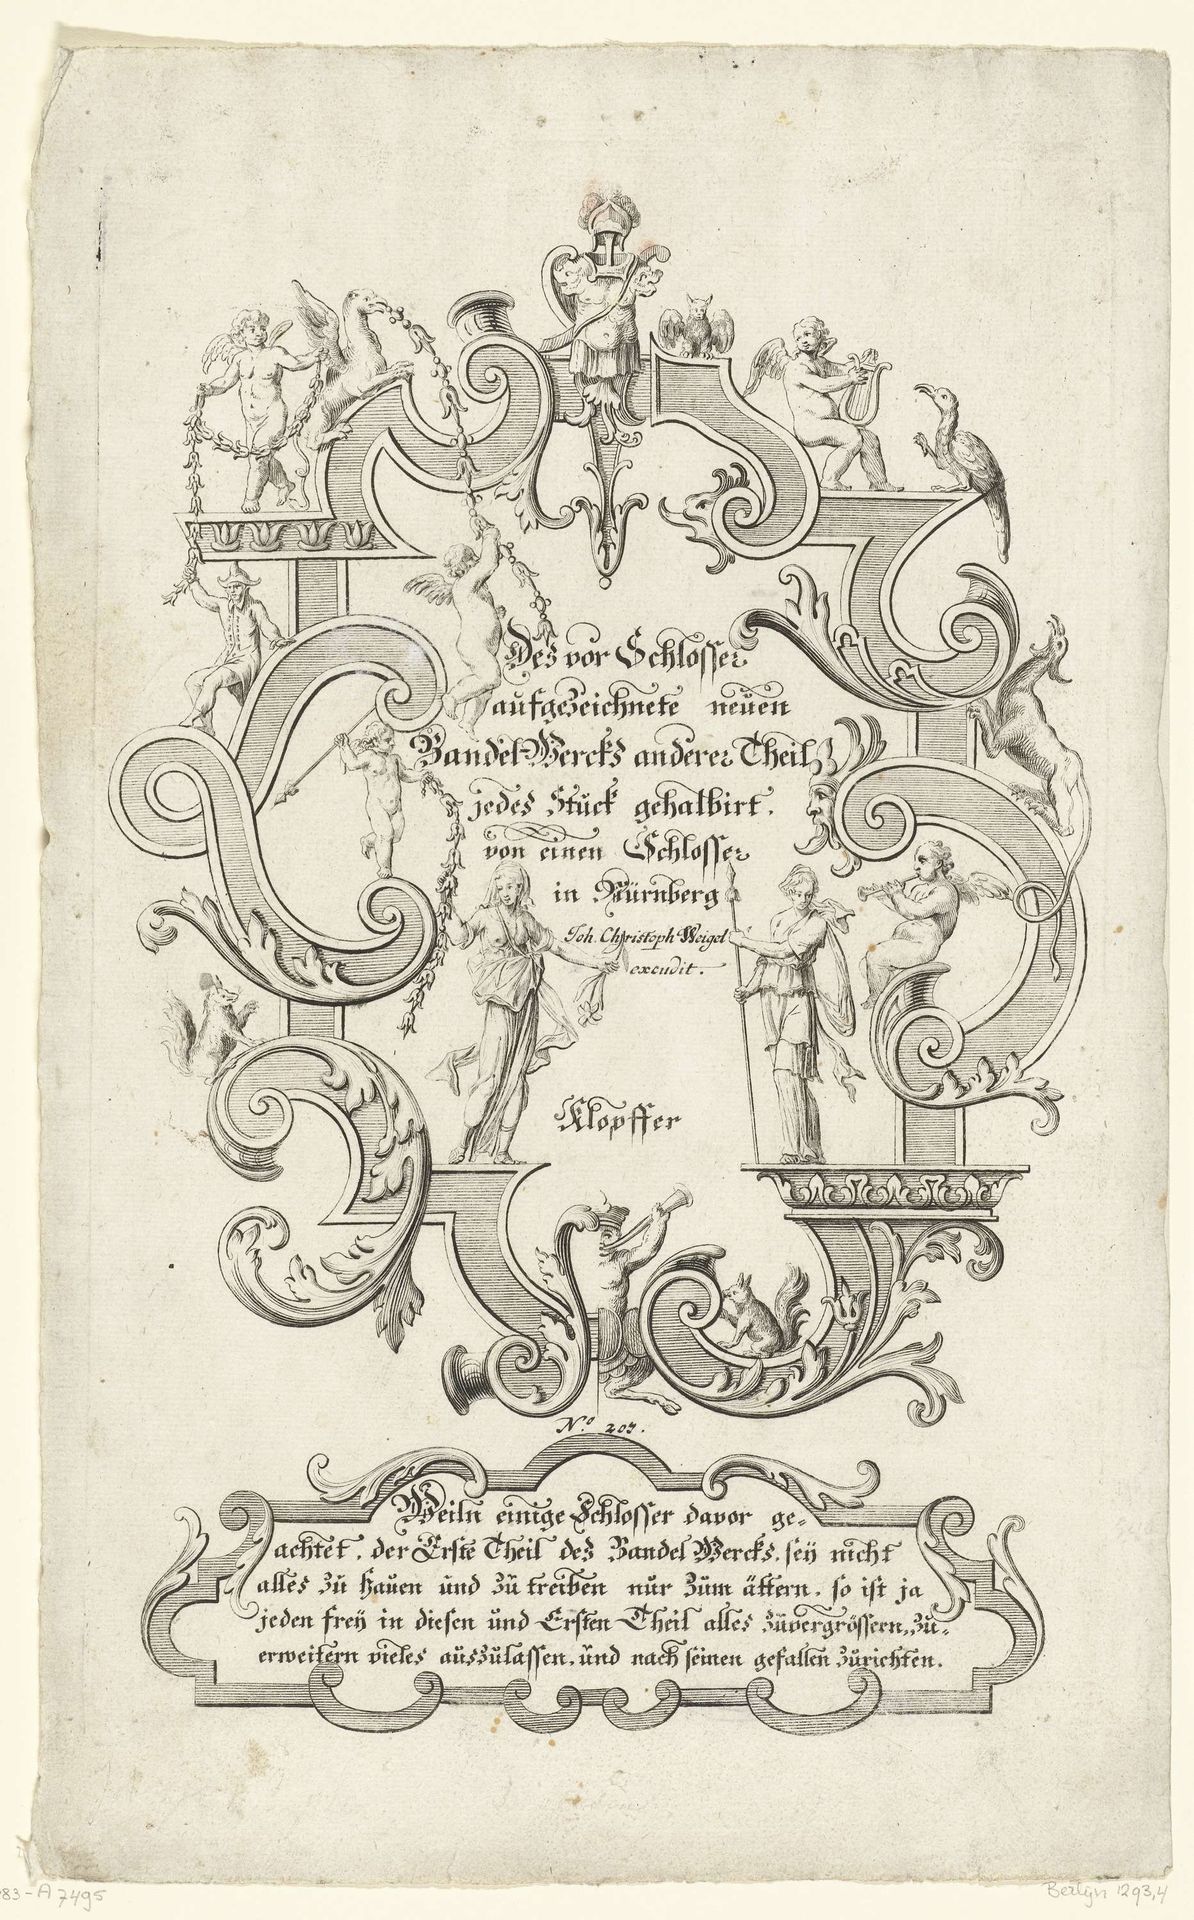 Des vor Schlosser
aufgezeichnete neuen
Bandel-Wercks anderer Theil
jedes Stück gehalbirt.
von einen Schlosser
in Nürnberg
Joh. Christoph Weigel
excudit.
Klopffer
N.º 203.
Weiln einige Schlosser davor ge=
achtet, der Erste Theil des Bandel Wercks, seÿ nicht
alles zu hauen und zu treiben nur zum ättern, so ist ja
jeden freÿ in diesen und Ersten Theil alles zuvergrössern, zu=
erweitern vieles auszulassen, und nach seinen gefallen zurichten.
83-A 7495
Berlyn 1293,4